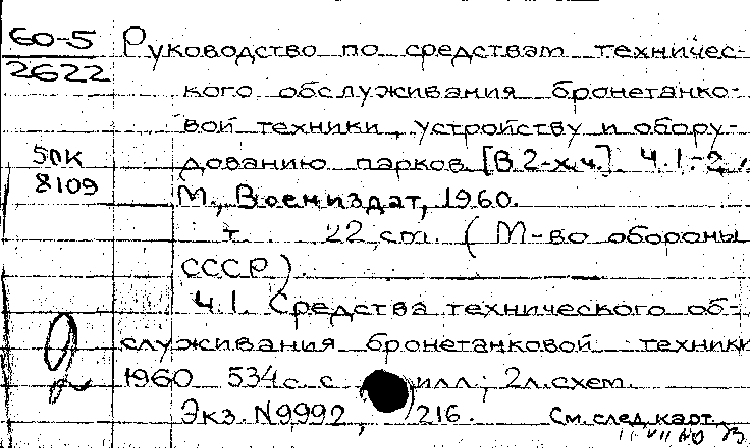 60-5
2622
Руководство по средствам техничес-
кого обслуживания бронетанко-
вой техники, устройству и обору-
дованию парков [В 2-х ч.] Ч.1-2.
5ПК
8109
М., Воениздат, 1960.
т. 22 см. (М-во обороны
СССР).
Ч.1. Средства технического об-
служивания бронетанковой техники
1960 534 с. с илл; 2 л. схем.
Экз. N9992, 216. См. след. карт.
2